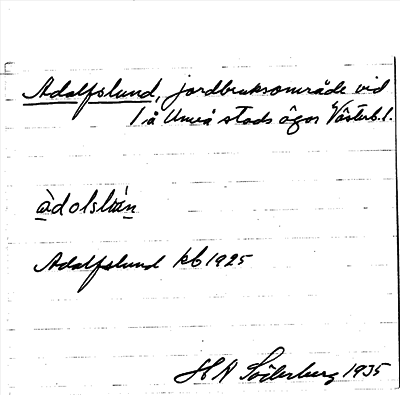 Adolfslund, jordbruksområde vid
/ å Umeå stads ägor Västerb. l.
àdolslɯ́n
Adolfslund kb 1925
H A Söderberg 1935